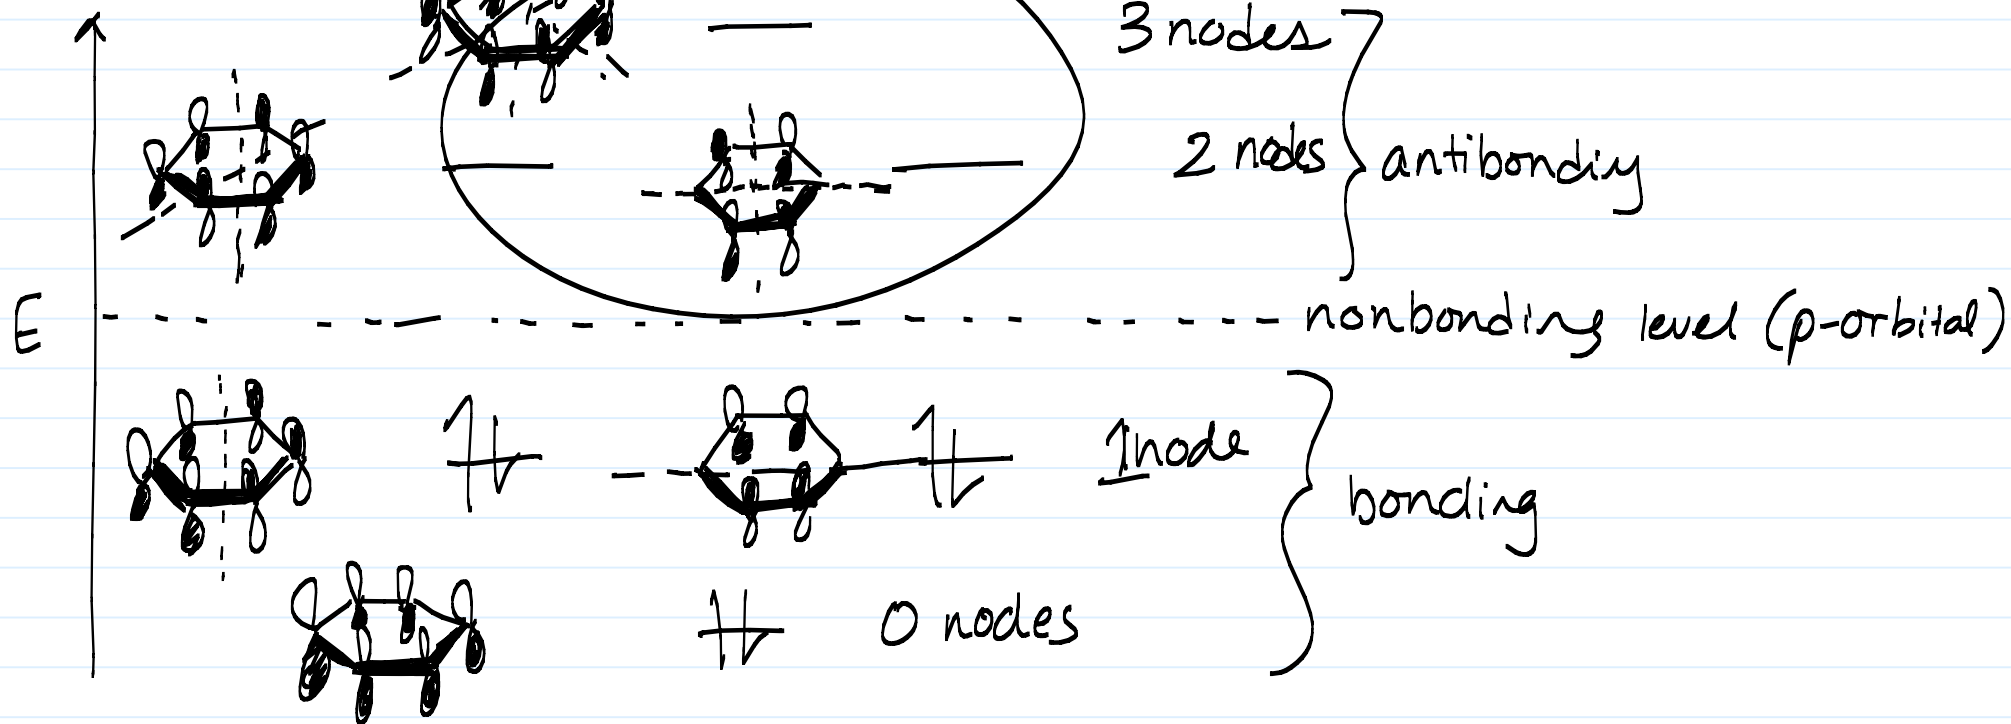 3 nodes
2 nodes
antibondiy
E
nonbonding level (p-orbital)
1 node
bonding
0 nodes